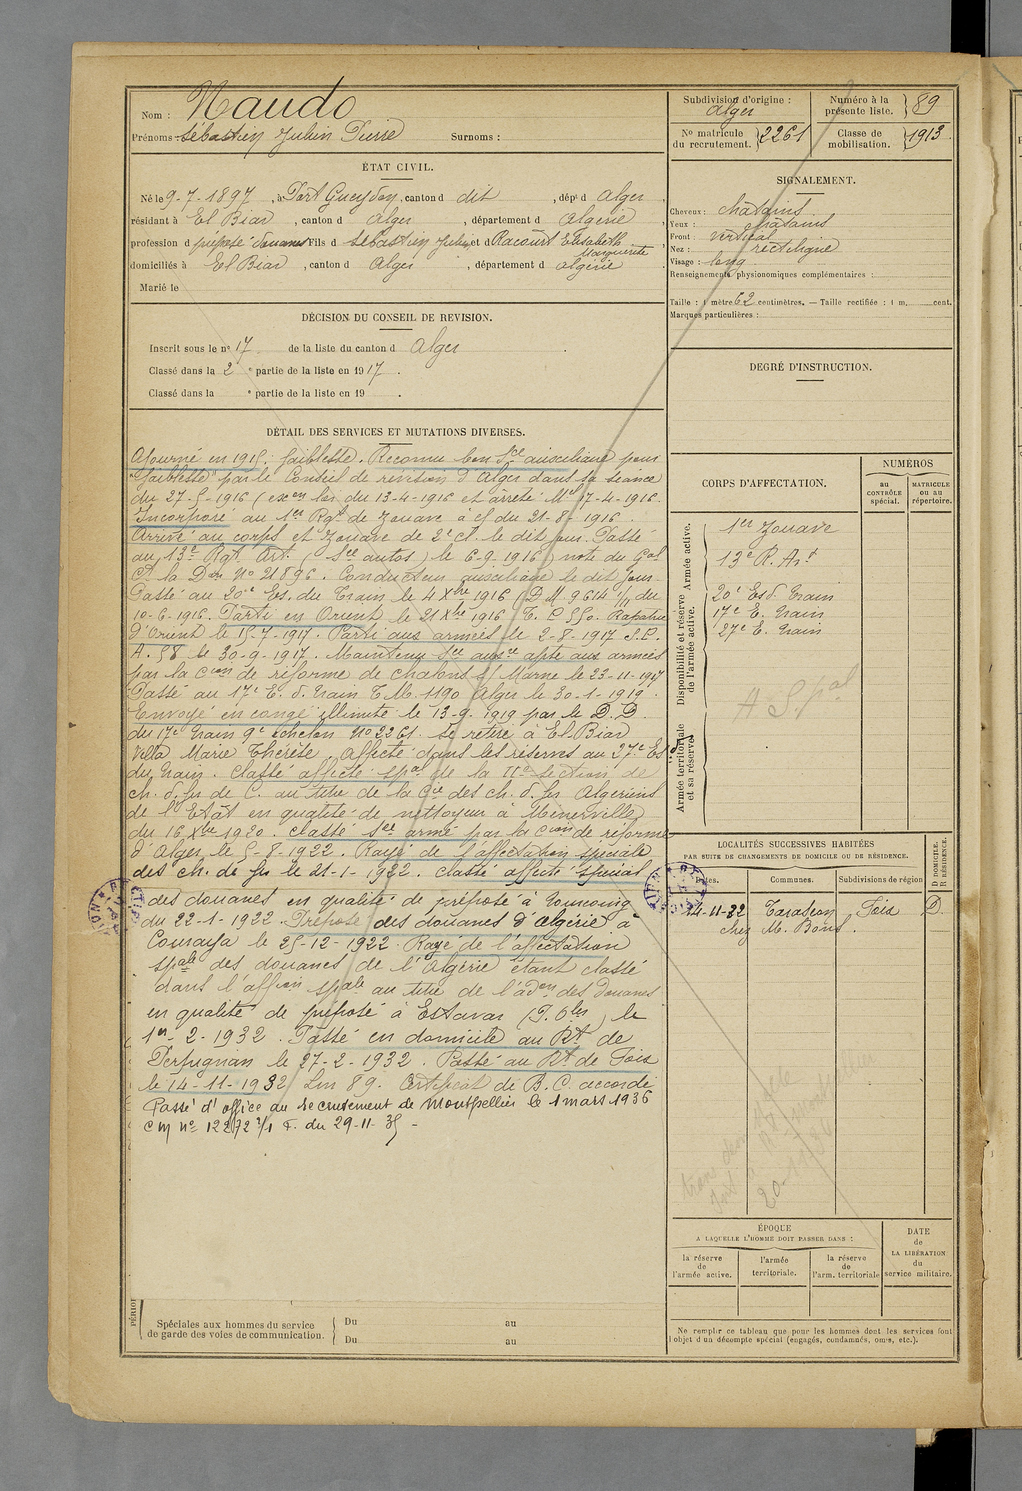 Nom : Naudo
Prénoms Sébastien Julien Pierre Surnoms :
ÉTAT CIVIL.
Né le 9-7-1897, à Port Gueydon, canton d dit, dépt d Alger,
résidant à El Biar, canton d Alger, département d Algérie,
profession d préposé douanes Fils d Sébastien Julien et d Racourt Elisabeth
Marguerite
domiciliés à El Biar, canton d Alger, département d Algérie.
Marié le
DÉCISION DU CONSEIL DE REVISION.
Inscrit sous le no 17 de la liste du canton d Alger.
Classé dans la 2e partie de la liste en 1917.
Classé dans la e partie de la liste en 19 .
DÉTAIL DES SERVICES ET MUTATIONS DIVERSES.
Ajourné en 1915, faiblesse. Reconnu bon Sce auxiliaire pour
"faiblesse" par le Conseil de révision d'Alger dans sa séance
du 27-5-1916 (exon loi du 13-4-1916 et arrêté Mel 17-4-1916.
Incorporé au 1er Rgt de Zouave à c/ du 21-8-1916.
Arrivé au corps et zouave de 2e cl. le dit jour. Passé
au 13e Rgt Art. (Sce autos) le 6-9-1916) note du Gal
Ct la Don No 21896. Conducteur auxiliaire le dit jour.
Passé au 20e Es. du Train le 4 Xbre 1916 (D M 9614 1/11 du
10-6-1916. Parti en Orient le 21 Xbre 1916 T. P 550. Rapatrié
d'Orient le 15-7-1917. Parti aux armées le 2-8-1917 S.P.
A. 58 le 30-9-1917. Maintenu Sce auxre apte aux armées
par la Cion de réforme de Chalons s/ Marne le 23-11-1917
Passé au 17e E. d. Train T. M. 1190 Alger le 30-1-1919.
Envoyé en congé illimité le 13-9-1919 par le D.D.
du 17e Train 9e échelon No 2261. Se retire à El-Biar
Villa Marie Thérèse. Affecté dans les réserves au 27e Esd
du Train. Classé affecté spal de la 11e section de
ch. d. fer de C. au titre de la Cie des ch. d. fer Algériens
de l'Etat en qualité de nettoyeur à Ménerville
du 16 Xbre 1920. Classé Sce armé par la Cion de réforme
d'Alger le 5-8-1922. Rayé de l'affectation spéciale
des ch. de fer le 21-1-1922. Classé affecté spécial
des douanes en qualité de préposé à
du 22-1-1922. Préposé des douanes d'Algérie à
Gouraya le 25-12-1922. Rayé de l'affectation
spale des douanes de l'Algérie étant classé
dans l'affon spale au titre de l'adon des Douanes
en qualité de préposé à Estavar (P. Oles) le
1er-2-1932. Passé en domicile au Rt de
Perpignan le 27-2-1932. Passé au Rt de Foix
le 14-11-1932 Lm 89. Certificat de B. C. accordé
Passé d'office au recrutement de Montpellier le 1 mars 1936
CM no 12272 1/1 F. du 29-11-35 -
PÉRIO
Spéciales aux hommes du service
de garde des voies de communication.
Du au
Du au
Subdivision d'origine :
Alger
Numéro à la
présente liste. 89
No matricule
du recrutement. 2261
Classe de
mobilisation. 1913
SIGNALEMENT.
Cheveux : châtains
Yeux : châtains
Front : vertical
Nez : rectiligne
Visage : long
Renseignements physionomiques complémentaires :
Taille : 1 mètre 62 centimètres. — Taille rectifiée : 1 m. cent.
Marques particulières :
DEGRÉ D'INSTRUCTION.
CORPS D'AFFECTATION.
NUMÉROS
au
CONTRÔLE
spécial.
MATRICULE
ou au
répertoire.
Armée active.
1er Zouave
13e R. Art
Disponibilité et réserve
de l'armée active.
20e Esd. Train
17e E. Train
27e E. Train
A Spal
Armée territoriale
et sa réserve.
LOCALITÉS SUCCESSIVES HABITÉES
PAR SUITE DE CHANGEMENTS DE DOMICILE OU DE RÉSIDENCE.
Dates.
Communes.
Subdivisions de région
D DOMICILE.
R RÉSIDENCE.
14-11-32 Tarascon Foix D.
chez M. Bons.
20-11-36
ÉPOQUE
A LAQUELLE L'HOMME DOIT PASSER DANS :
la réserve
de
l'armée active.
l'armée
territoriale.
la réserve
de
l'arm. territoriale
DATE
de
LA LIBÉRATION
du
service militaire.
Ne remplir ce tableau que pour les hommes dont les services font
l'objet d'un décompte spécial (engagés, condamnés, omis, etc.).